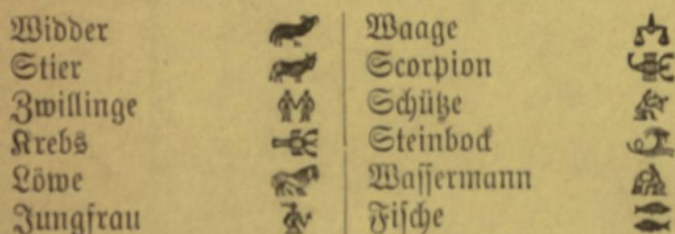 Widder
Stier
Zwillinge
Krebs
Löwe
Jungfrau
Waage
Scorpion
Schütze
Steinbock
Wassermann
Fische